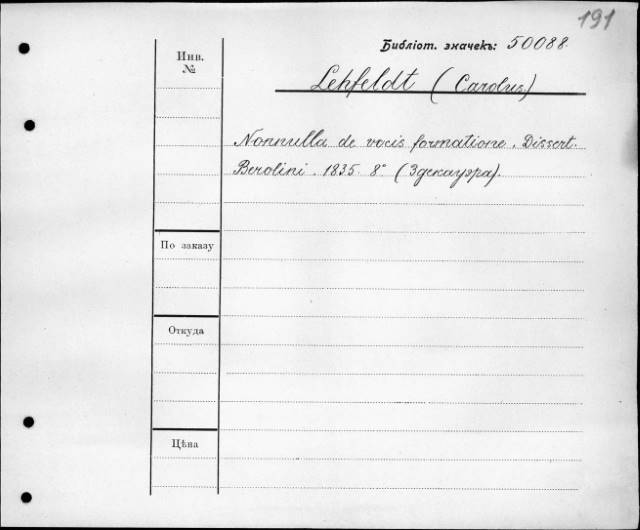 191
Библіот. значекъ: 50088
Инв.
№
Lehfeldt (Carolus)
Nonnulla de vocis formatione. Dissert.
Berolini. 1835. 8° (Здекауэра).
По заказу
Откуда
Цѣна